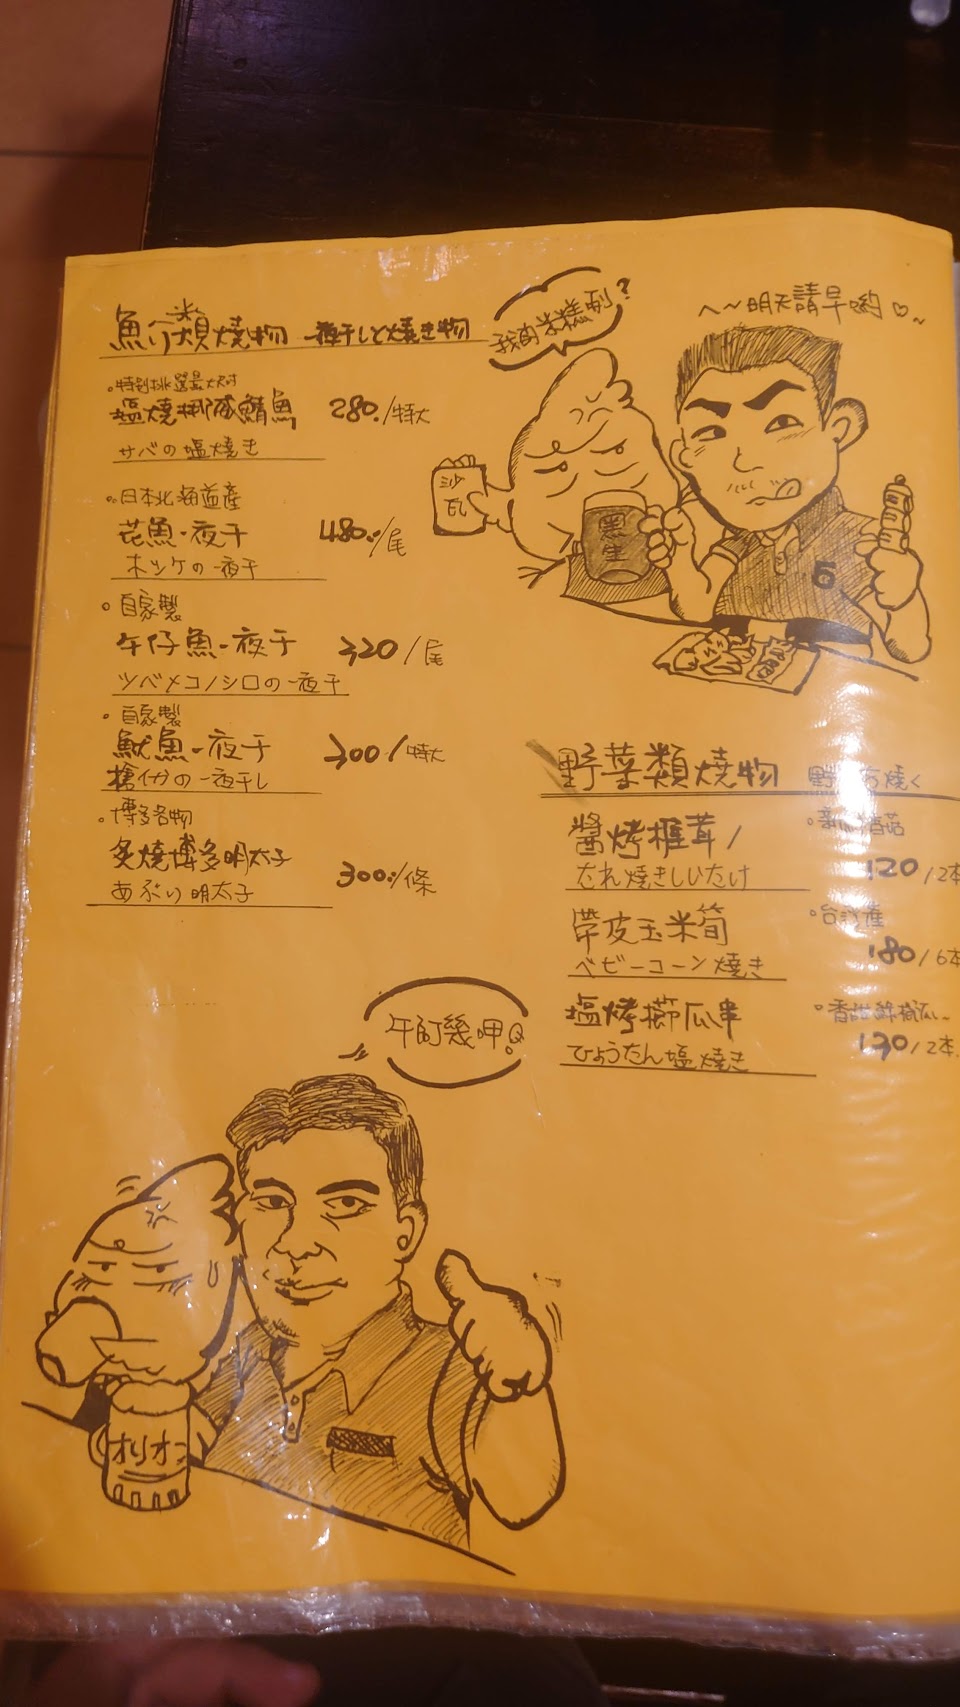 魚類燒物 一夜干しと燒き物
特別挑選最大尺寸
塩燒挪威鯖魚 280./特大
サバの塩燒き
日本北海道産
花魚一夜干 480./尾
ホッケの一夜干
自家製
午仔魚一夜干 320/尾
ツバメコノシロの一夜干
自家製
魷魚一夜干 300/特大
槍イカの一夜干し
博多名物
炙燒博多明太子 300./條
あぶり明太子
我的米糕咧?
へ~明天請早喲♡~
沙瓦
黑生
5
野菜類燒物
醬烤椎茸/ 120/2本
たれ焼きしいたけ
台灣産
帶皮玉米筍 180/6本
ベビーコーン燒き
塩烤櫛瓜串 130/2本.
ひょうたん塩燒き
オリオン